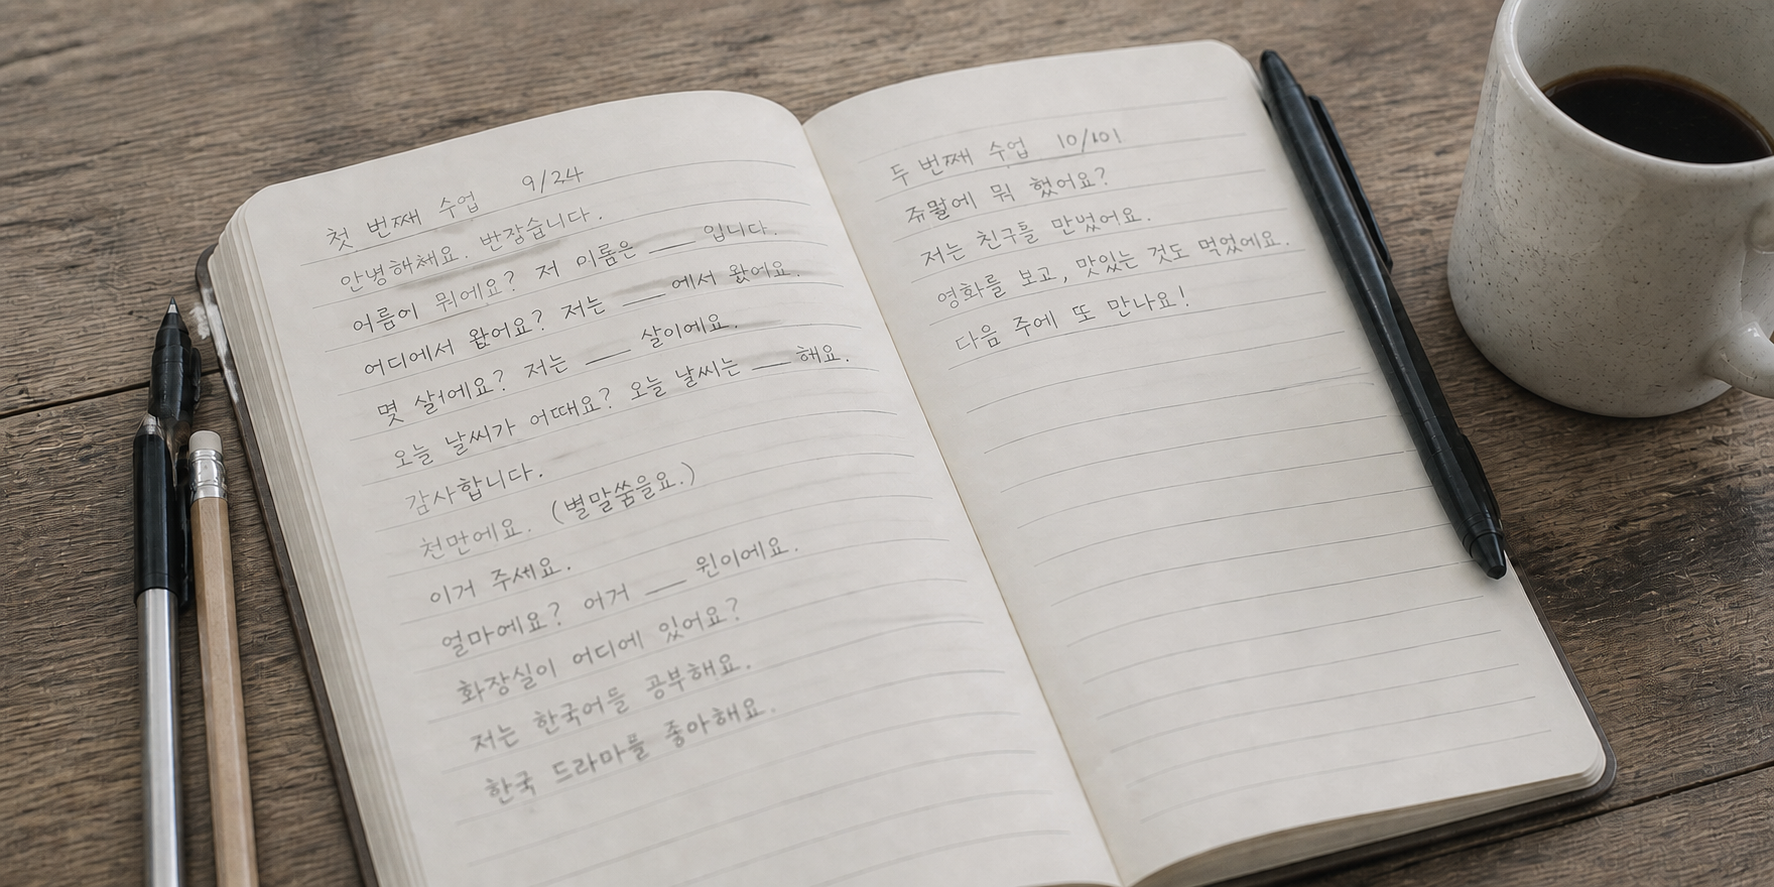 첫 번째 수업 9/24
안녕해체요. 반장습니다.
어름이 뭐에요? 저 이름은 ___ 입니다.
어디에서 왔어요? 저는 ___ 에서 왔어요.
몇 살에요? 저는 ___ 살이에요.
오늘 날씨가 어때요? 오늘 날씨는 ___ 해요.
감사합니다.
천만에요. (별말씀을요.)
이거 주세요.
얼마에요? 어거 ___ 원이에요.
화장실이 어디에 있어요?
저는 한국어를 공부해요.
한국 드라마를 좋아해요.
두 번째 수업
뭐 했어요?
저는 친구를 만났어요.
영화를 보고, 맛있는 것도 먹었에요.
다음 주에 또 만나요!